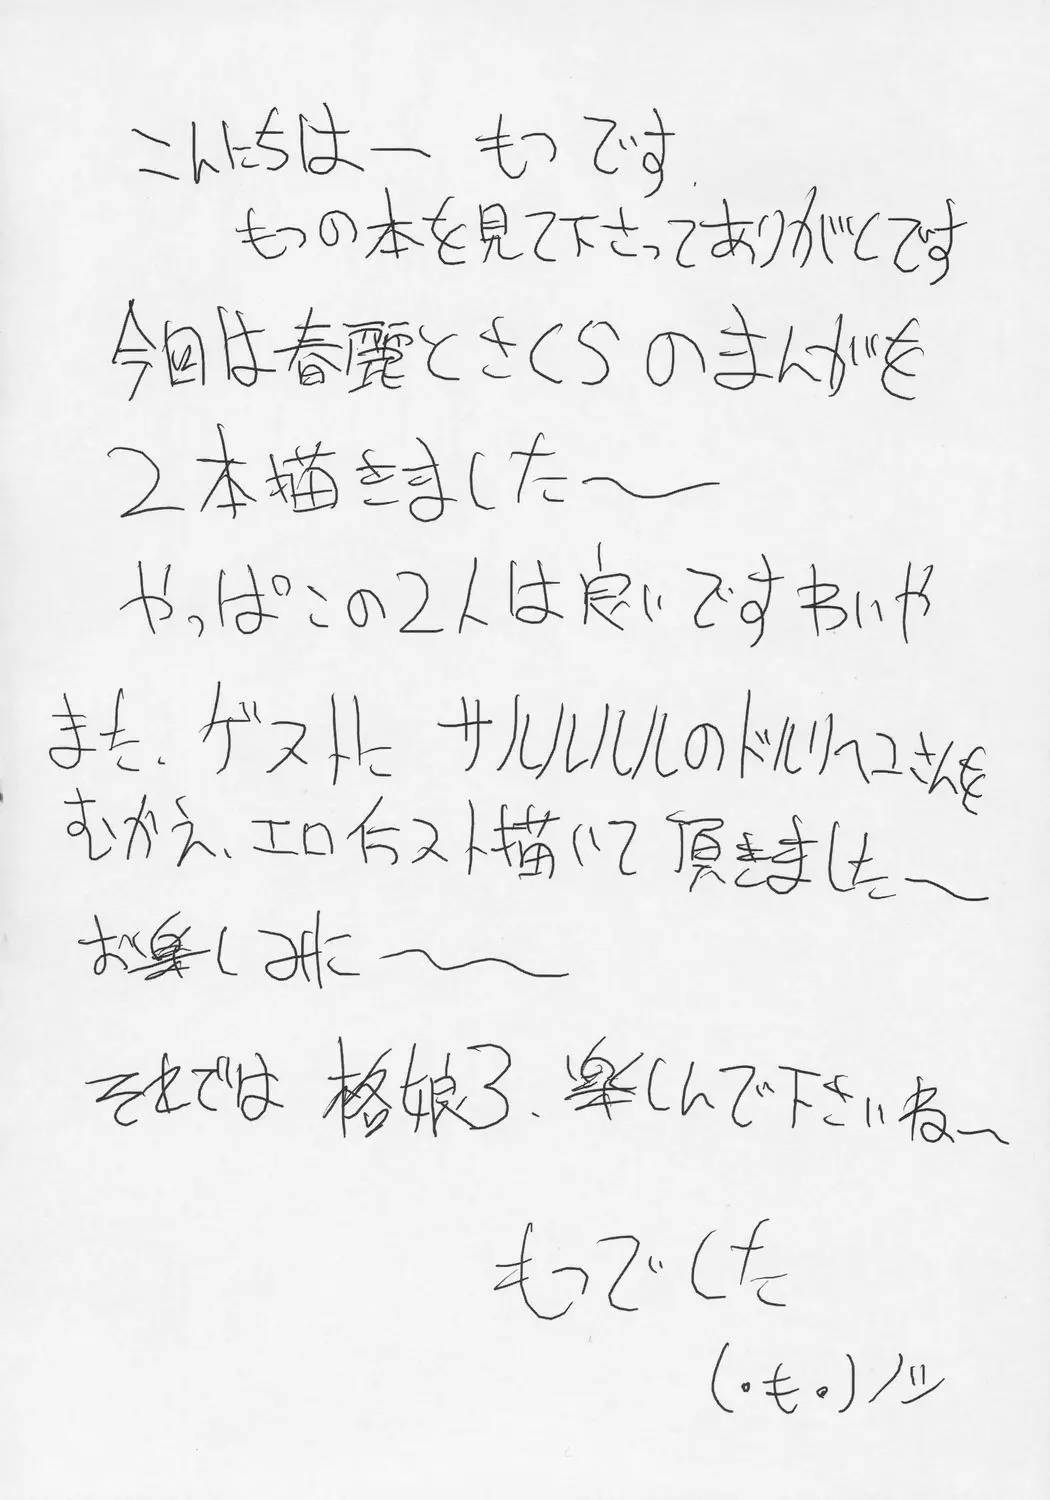 こんにちはー もつです
もつの本を見て下さってありがとです
今回は春麗とさくらのまんがを
2本描きました〜
やっぱこの2人は良いですわいや
また、ゲストに サルルルルのドルリヘユさんを
むかえ、エロイラスト描いて頂きました〜
お楽しみに〜
それでは 格娘3、楽しんで下さいねー
もつでした
(・も・)ノシ